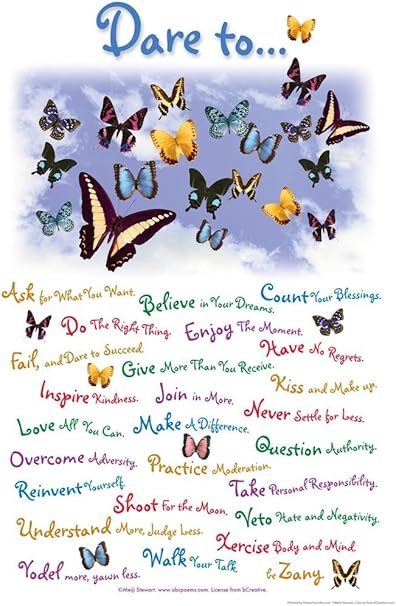 Dare to...
Ask for What You Want.
Believe in Your Dreams.
Count Your Blessings.
Do The Right Thing.
Enjoy The Moment.
Fail, and Dare to Succeed.
Give More Than You Receive.
Have No Regrets.
Inspire Kindness.
Join in More.
Kiss and Make up.
Love All You Can.
Make A Difference.
Never Settle for Less.
Overcome Adversity.
Practice Moderation.
Question Authority.
Reinvent Yourself.
Shoot For the Moon.
Take Personal Responsibility.
Understand More, Judge Less.
Veto Hate and Negativity.
Walk Your Talk.
Xercise Body and Mind
Yodel more, yawn less.
be Zany
©Meiji Stewart. www.abcpoems.com. License from bCreative.